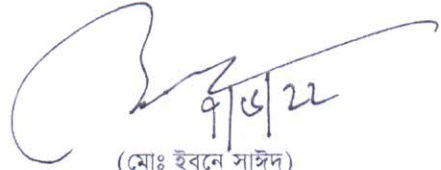 ৭|৬|২২
(মোঃ ইবনে সাঈদ)